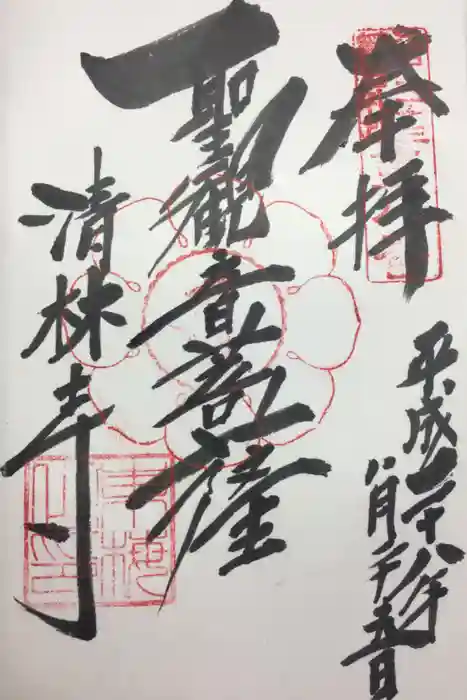 奉拝
平成二十八年
八月二十五日
聖観音菩薩
清林寺